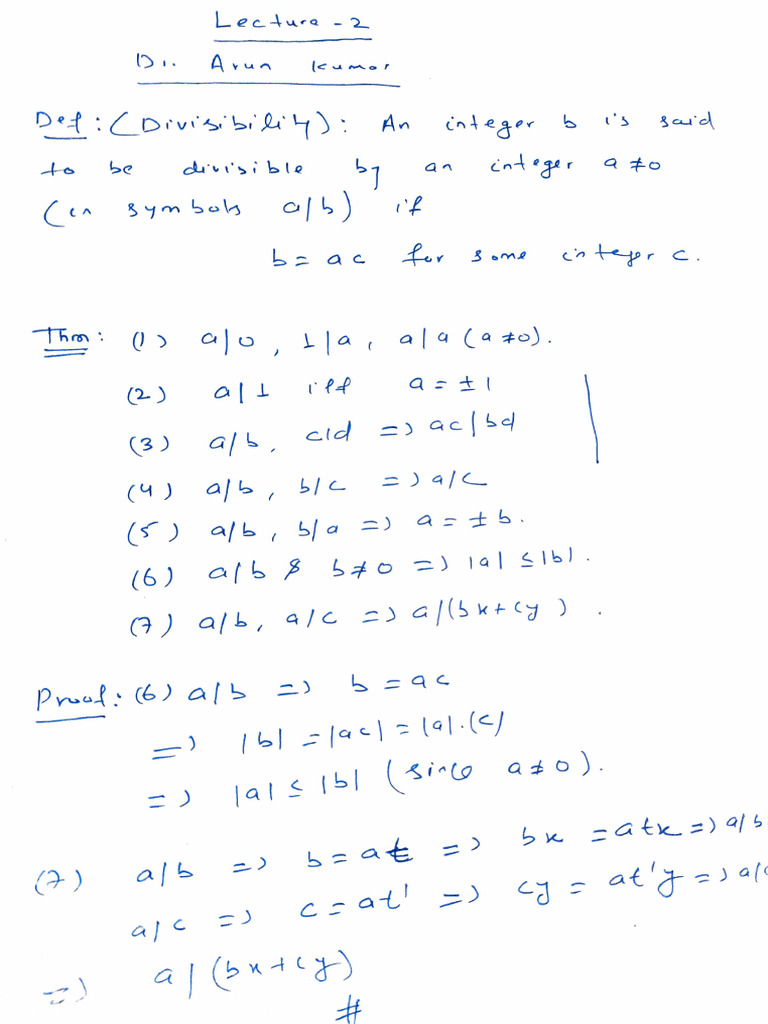 Lecture - 2
Dr. Arun Kumar
Def: (Divisibility): An integer b is said
to be divisible by an integer a ≠ 0
(in symbols a/b) if
b = ac for some integer c.
Thm: (1) a|0, 1|a, a|a (a ≠ 0).
(2) a|1 iff a = ±1
(3) a/b, c|d => ac|bd
(4) a/b, b/c => a/c
(5) a/b, b/a => a = ±b.
(6) a/b & b ≠ 0 => |a| ≤ |b|.
(7) a/b, a/c => a/(bx+cy).
Proof: (6) a/b => b = ac
=> |b| = |ac| = |a|.|c|
=> |a| ≤ |b| (since a ≠ 0).
(7) a/b => b = at => bx = atx => a/b
a/c => c = at' => cy = at'y => a/c
=> a|(bx+cy)
#